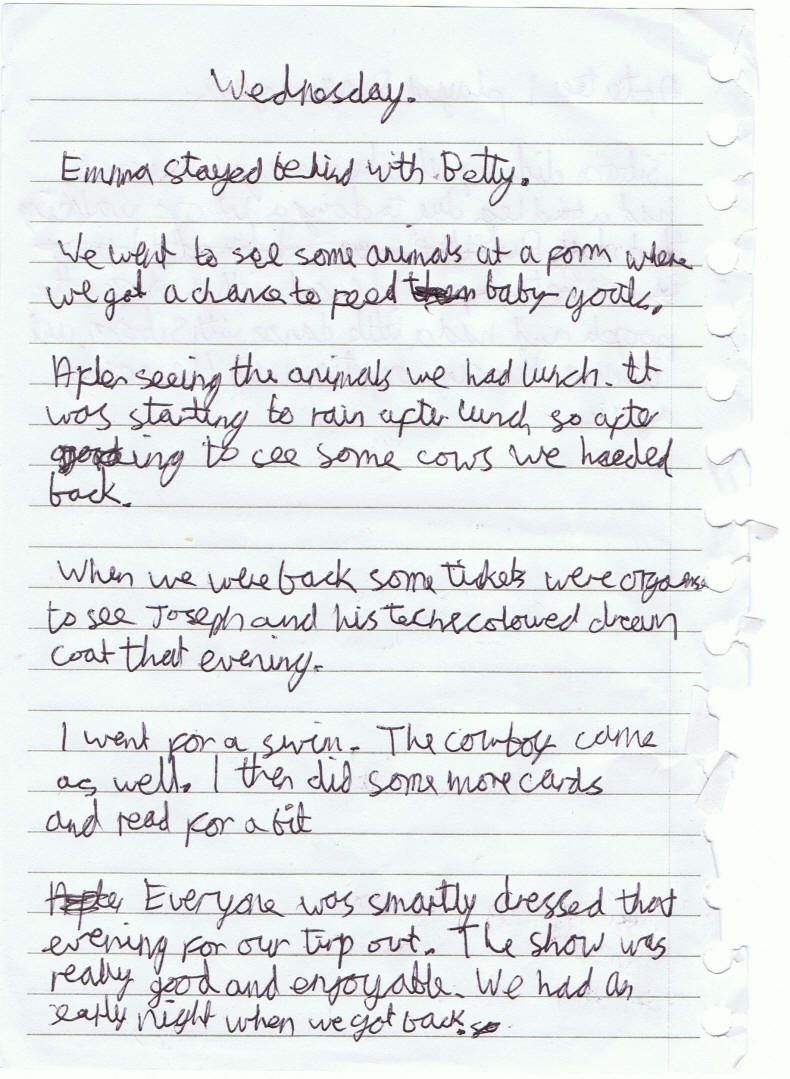 Wednesday.
Emma stayed behind with Betty.
We went to see some animals at a farm where
we got a chance to feed baby goats.
After seeing the animals we had lunch. It
was starting to rain after lunch so after
going to see some cows we headed
back.
When we were back some tickets were organise
to see Joseph and his techecoloured dream
coat that evening.
I went for a swim. The cowboy came
as well. I then did some more cards
and read for a bit
Everyone was smartly dressed that
evening for our tirp out. The show was
really good and enjoyable. We had an
early night when we got back.